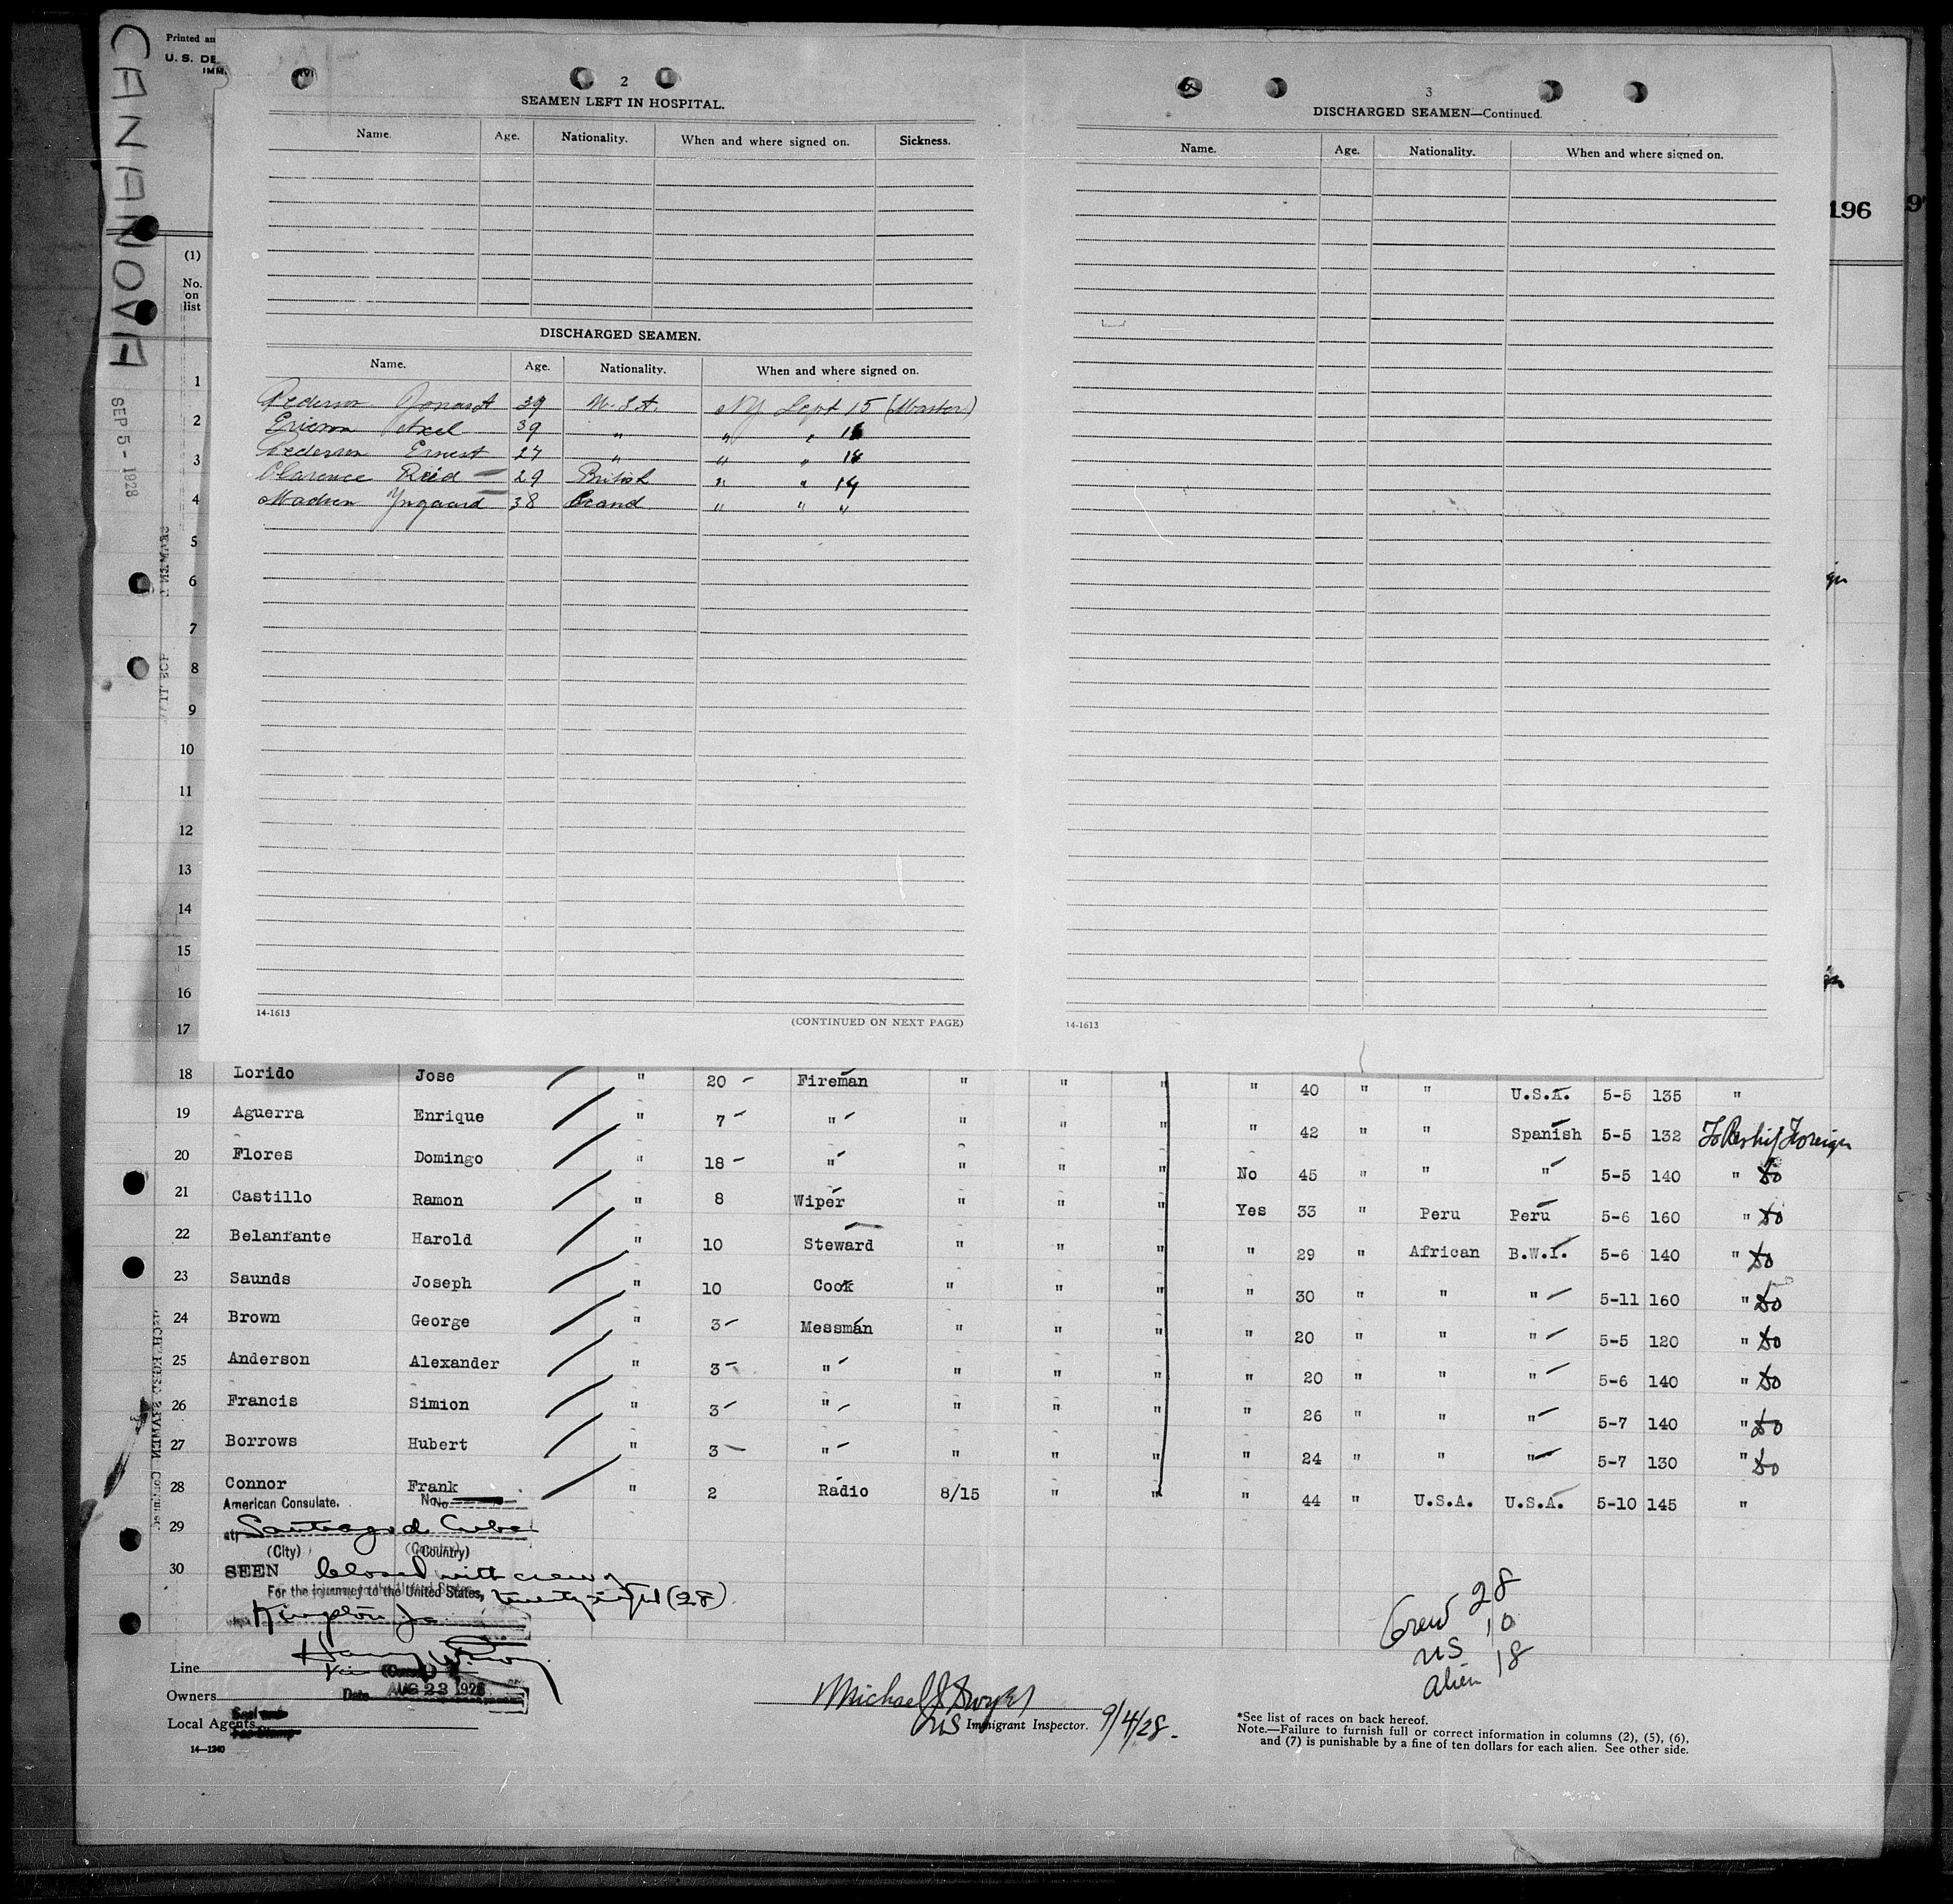 CANANOVA
SEP 5 - 1928
Printed an
U. S. DE
IMM.
196
(1)
No. on list
2
SEAMEN LEFT IN HOSPITAL.
Name. Age. Nationality. When and where signed on. Sickness.
DISCHARGED SEAMEN.
Name. Age. Nationality. When and where signed on.
Pederson 39 NY Sept 15 (Master)
Ericson Axel 39 " " "
Pedersen Ernest 27 " " "
Clarence Reid 29 British " " 14
Madsen 38 " " "
14-1613
(CONTINUED ON NEXT PAGE)
3
DISCHARGED SEAMEN—Continued.
Name. Age. Nationality. When and where signed on.
14-1613
1
2
3
4
5
6
7
8
9
10
11
12
13
14
15
16
17
18 Lorido Jose " 20 Fireman " " " " 40 " " U.S.A. 5-5 135 "
19 Aguerra Enrique " 7 " " " " " 42 " " Spanish 5-5 132 To Reship Foreign
20 Flores Domingo " 18 " " " " No 45 " " " 5-5 140 " do
21 Castillo Ramon " 8 Wiper " " " Yes 33 " Peru Peru 5-6 160 " do
22 Belanfante Harold " 10 Steward " " " " 29 " African B.W.I. 5-6 140 " do
23 Saunds Joseph " 10 Cook " " " " 30 " " " 5-11 160 " do
24 Brown George " 3 Messman " " " " 20 " " " 5-5 120 " do
25 Anderson Alexander " 3 " " " " " 20 " " " 5-6 140 " do
26 Francis Simion " 3 " " " " " 26 " " " 5-7 140 " do
27 Borrows Hubert " 3 " " " " " 24 " " " 5-7 130 " do
28 Connor Frank " 2 Radio 8/15 " " " 44 " U.S.A. U.S.A. 5-10 145 "
American Consulate. No.
29 at Santiago de Cuba
(City) (Country)
30 SEEN Closed with crew of
For the journey to the United States, twenty-eight (28)
Kingston Ja
Line
(Consul)
Owners Date AUG 23 1928
Local Agents
14—1240
Crew 28
US 10
alien 18
Michael J Dwyer
US Immigrant Inspector. 9/4/28.
*See list of races on back hereof.
Note.—Failure to furnish full or correct information in columns (2), (5), (6),
and (7) is punishable by a fine of ten dollars for each alien. See other side.